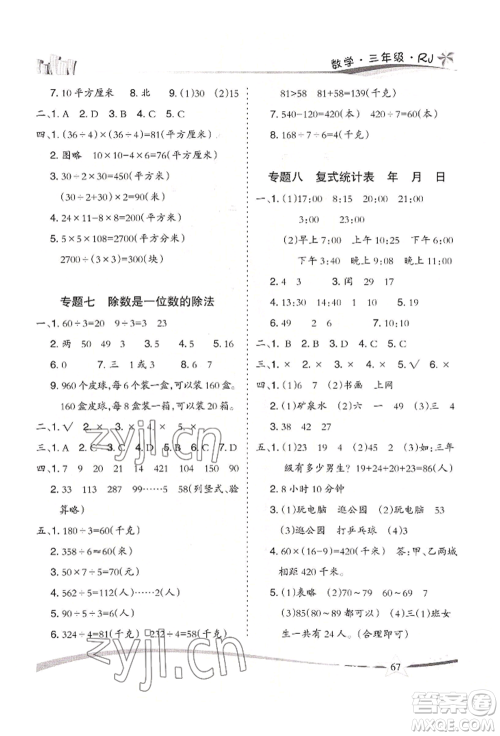 数学·三年级·RJ
7. 10平方厘米 8. 北 9. (1)30 (2)15
二、1. A 2. D 3. A 4. C 5. A
四、1. (36÷4)×(36÷4)=81(平方厘米)
2. 图略 4×4=16(平方厘米)
3. 30÷2×30=450(平方米)
(30÷2+30)×2=90(米)
4. 24×11-8×8=200(平方厘米)
5. 5×5×108=2700(平方分米)
2700÷(3×3)=300(块)
专题七 除数是一位数的除法
一、1. 60÷3=20 9÷3=3 23
2. 两 50 49 3. 2 94 4. 三 两
6. 0 7. 三 3 1或4 8. 15
9. 960个皮球,每6个装一盒,可以装160盒.
160盒皮球,每盒6个,一共是960个.
二、1. √ 2. × 3. × 4. √ 5. ×
三、1. B 2. C 3. D 4. C 5. A
四、1. 23 18 70 91 60 150
2. 33 112 87……5 58(列竖式、验
算略)
五、1. 180÷3=60(千克)
2. 358÷6≈60(元)
3. 562÷5=112(人)……2(人)
5. 90÷6-6=9(人)
6. 324÷4=81(千克) 232÷4=58(千克)
81>58 81+58=139(千克)
7. 540-120=420(本) 420÷7=60(本)
8. 168÷7=24(千克)
专题八 复式统计表 年 月 日
一、1. (1)17:00 8:15 20:00 21:00
3:00
(2)早上7:00 下午5:30
下午4:35 晚上8:00 晚上11:00
2. 4 3 3. 闰 29 17
4. 13:10 14:30 5. 40
6. 24 49 7. 12 8. 210
二、1. C 2. A 3. C 4. A 5. B
三、1. × 2. × 3. √ 4. √ 5. ×
四、1. (1)6 7 (2)书画 上网
2. (1)矿泉水
五、1. (1)23 19 24 (2)如:三年
级有多少男生? 19+24+20=63(人)
2. 8小时10分钟
3. (1)玩电脑 逛公园 (2)玩电脑
逛公园 打乒乓球 (3)略
4. 60×(16-9)=420(千米) 答:甲、乙两城
相距420千米.
5. (1)表略 (2)70~79 80~89
(3)80~89 60~69 (4)三班女
生一共有39人.(合理即可)
67
zyjl.cn
zyjl.cn